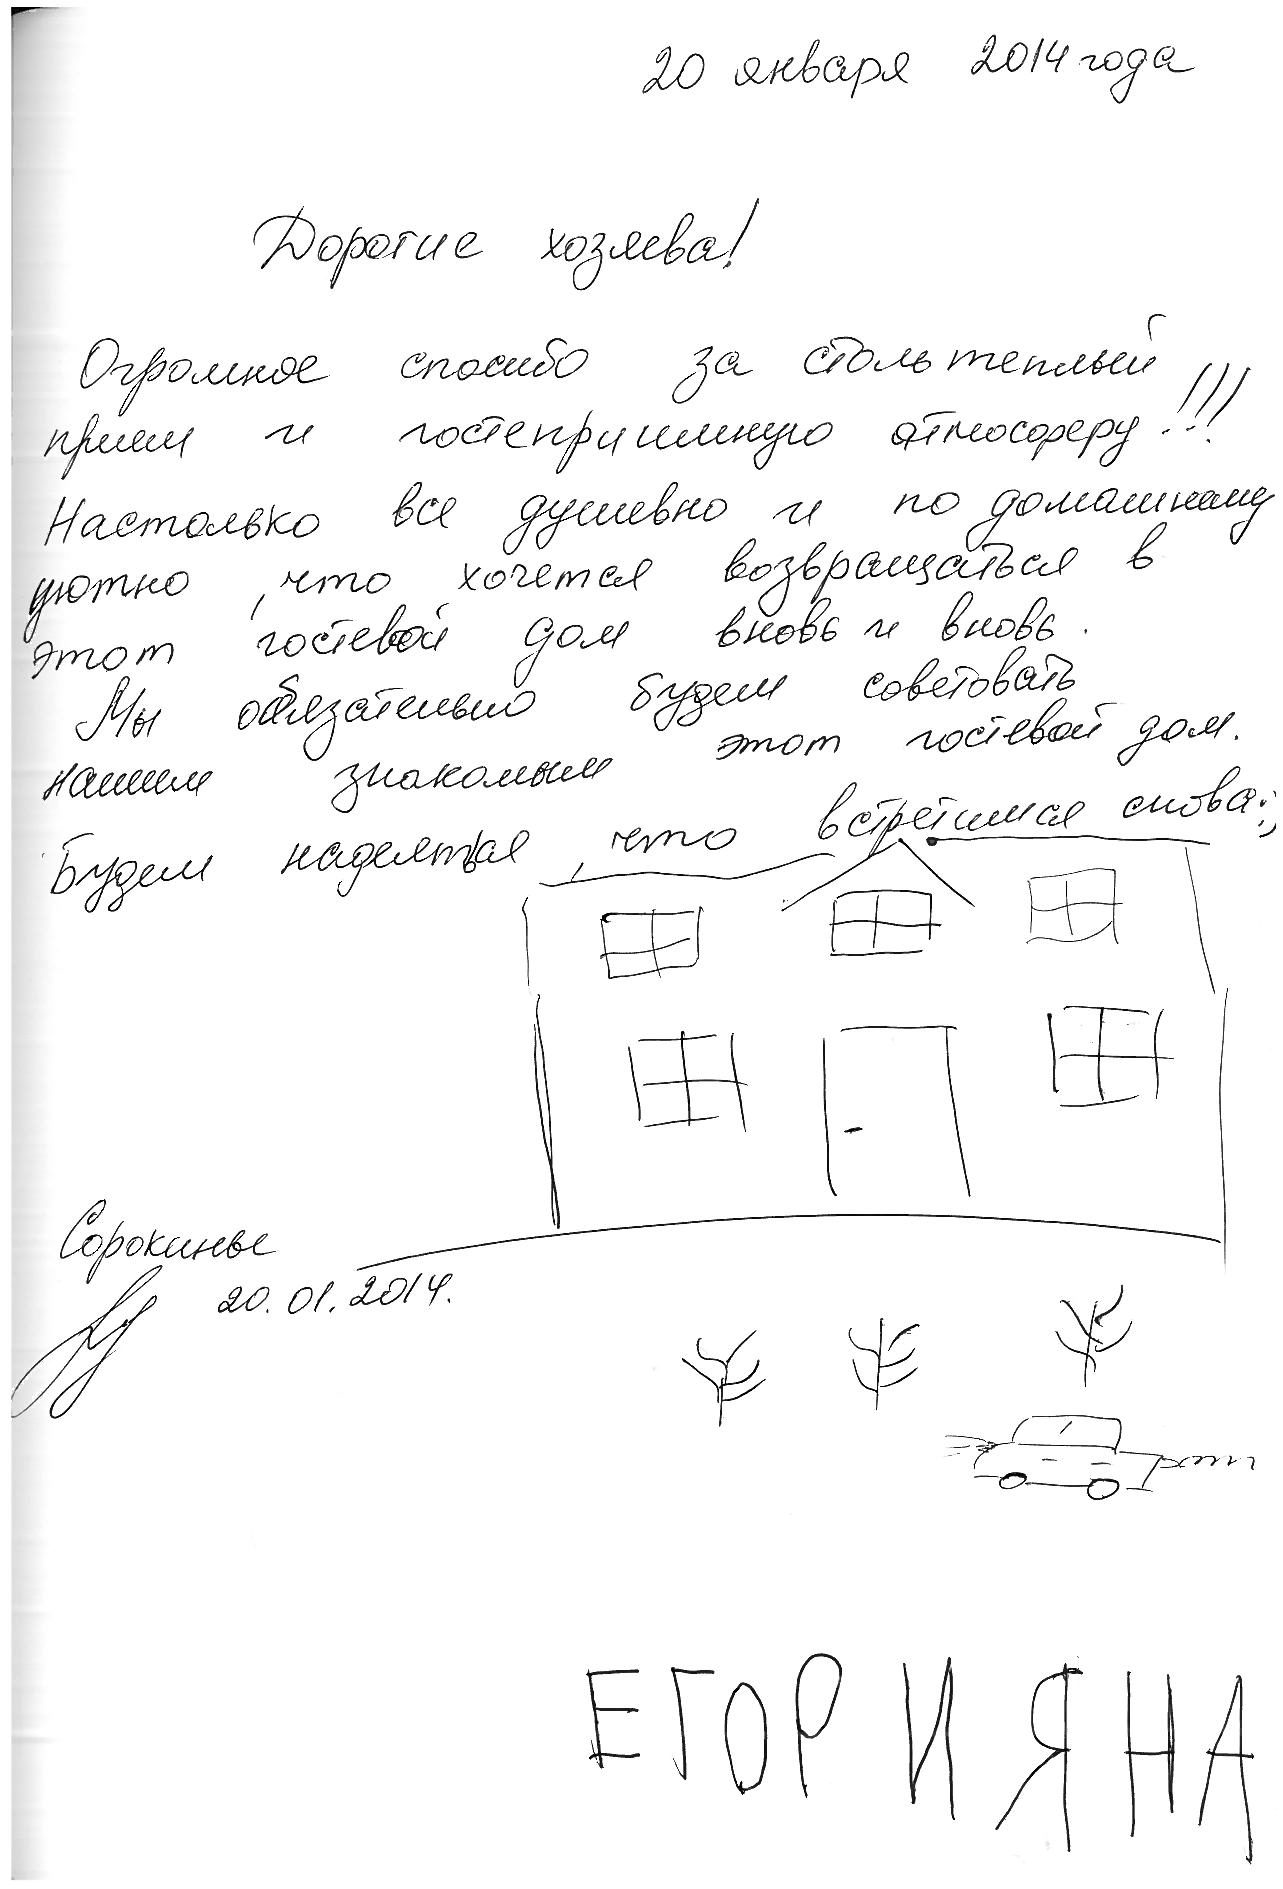 20 января 2014 года
Дорогие хозяева!
Огромное спасибо за столь теплый
прием и гостеприимную атмосферу!!!
Настолько все душевно и по домашнему
уютно, что хочется возвращаться в
этот гостевой дом вновь и вновь.
Мы обязательно будем советовать
нашим знакомым этот гостевой дом.
Будем надеяться, что встретимся снова:)
Сорокины
20.01.2014.
ЕГОР И ЯНА